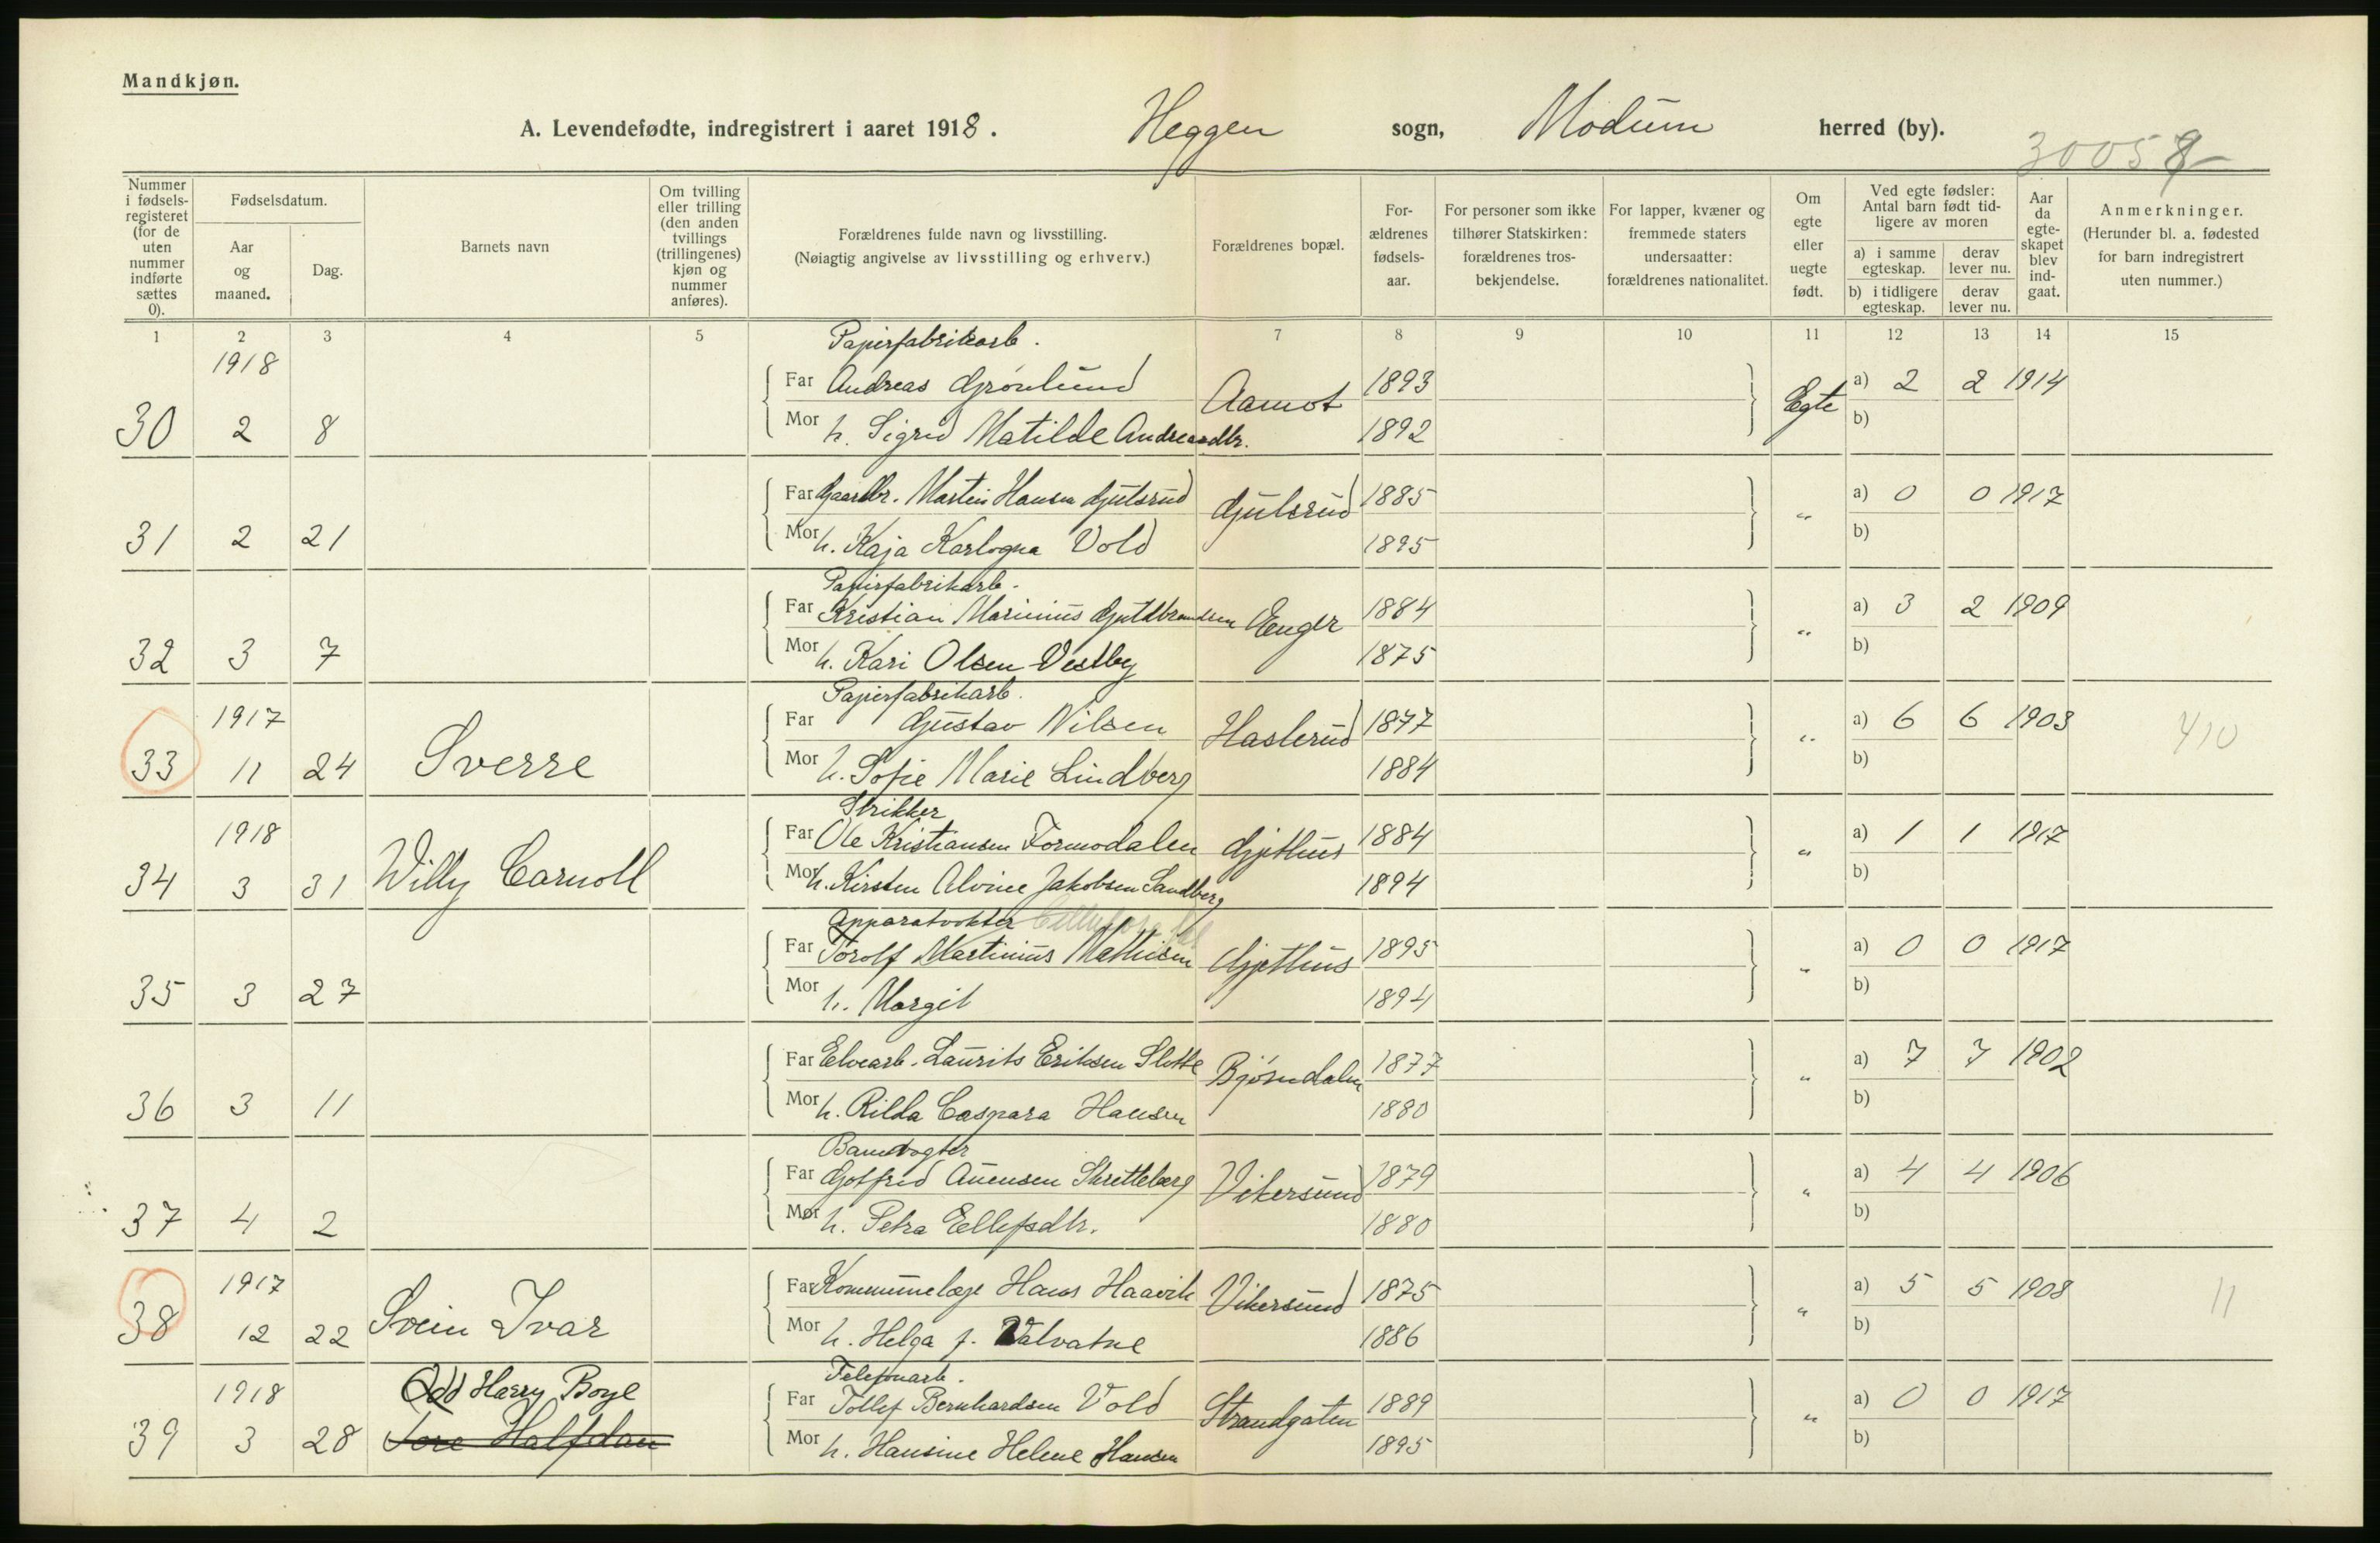 Mandkjøn.
A. Levendefødte, indregistrert i aaret 1918. Heggen sogn, Modum herred (by).
30058
Nummer i fødselsregisteret (for de uten nummer indførte sættes 0).
Fødselsdatum.
Aar og maaned.
Dag.
Barnets navn
Om tvilling eller trilling (den anden tvillings (trillingenes) kjøn og nummer anføres).
Forældrenes fulde navn og livsstilling.
(Nøiagtig angivelse av livsstilling og erhverv.)
Forældrenes bopæl.
Forældrenes fødselsaar.
For personer som ikke tilhører Statskirken: forældrenes trosbekjendelse.
For lapper, kvæner og fremmede staters undersaatter: forældrenes nationalitet.
Om egte eller uegte født.
Ved egte fødsler: Antal barn født tidligere av moren
a) i samme egteskap. derav lever nu.
b) i tidligere egteskap. derav lever nu.
Aar da egteskapet blev indgaat.
Anmerkninger.
(Herunder bl. a. fødested for barn indregistrert uten nummer.)
1 2 3 4 5 7 8 9 10 11 12 13 14 15
1918 Papirfabrikarb.
Far Andreas Grönlund Aamot 1893 Egte a) 2 2 1914
30 2 8 Mor h. Sigrid Matilde Andreasdtr. 1892 b)
Far Gaardbr. Martin Hansen Gjulsrud Gjulsrud 1885 " a) 0 0 1917
31 2 21 Mor h. Kaja Karlogna Vold 1895 b)
Papirfabrikarb.
Far Kristian Marinius Guldbrandsen Enger 1884 " a) 3 2 1909
32 3 7 Mor h. Kari Olsen Vestby 1875 b)
1917 Papirfabrikarb.
Far Gustav Nilsen Haslerud 1877 " a) 6 6 1903 410
33 11 24 Sverre Mor h. Sofie Marie Lindberg 1884 b)
1918 Strikker
Far Ole Kristiansen Formodalen Gjethus 1884 " a) 1 1 1917
34 3 31 Willy Carnoll Mor h. Kirsten Alvine Jakobsen Sandberg 1894 b)
Apparatvokter
Far Torolf Martinius Mathisen Gjethus 1895 " a) 0 0 1917
35 3 27 Mor h. Margit 1894 b)
Far Elvearb. Laurits Eriksen Slette Björndalen 1877 " a) 7 7 1902
36 3 11 Mor h. Rilda Caspara Hansen 1880 b)
Banevogter
Far Gotfred Auensen Skretteberg Vikersund 1879 " a) 4 4 1906
37 4 2 Mor h. Petra Ellefsdtr. 1880 b)
1917 Far Kommunelæge Hans Haavik Vikersund 1875 " a) 5 5 1908 11
38 12 22 Svein Ivar Mor h. Helga f. Valvatne 1886 b)
1918 Odd Harry Boye Telefonarb.
Far Tollef Bernhardsen Vold Strandgaten 1889 " a) 0 0 1917
39 3 28 Tore Halfdan Mor h. Hansine Helene Hansen 1895 b)